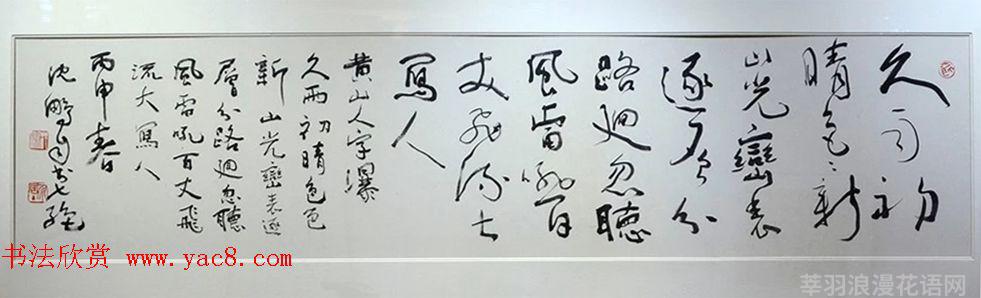 久雨初
晴色色新
山光巒表
逐層分
路迴忽聽
風雷吼百
丈飛流大
寫人
黄山人字瀑
久雨初晴色色
新山光巒表逐
層分路迴忽聽
風雷吼百丈飛
流大寫人
丙申春
沈鵬自书七絶
书法欣赏 www.yac8.com
莘羽浪漫花语网